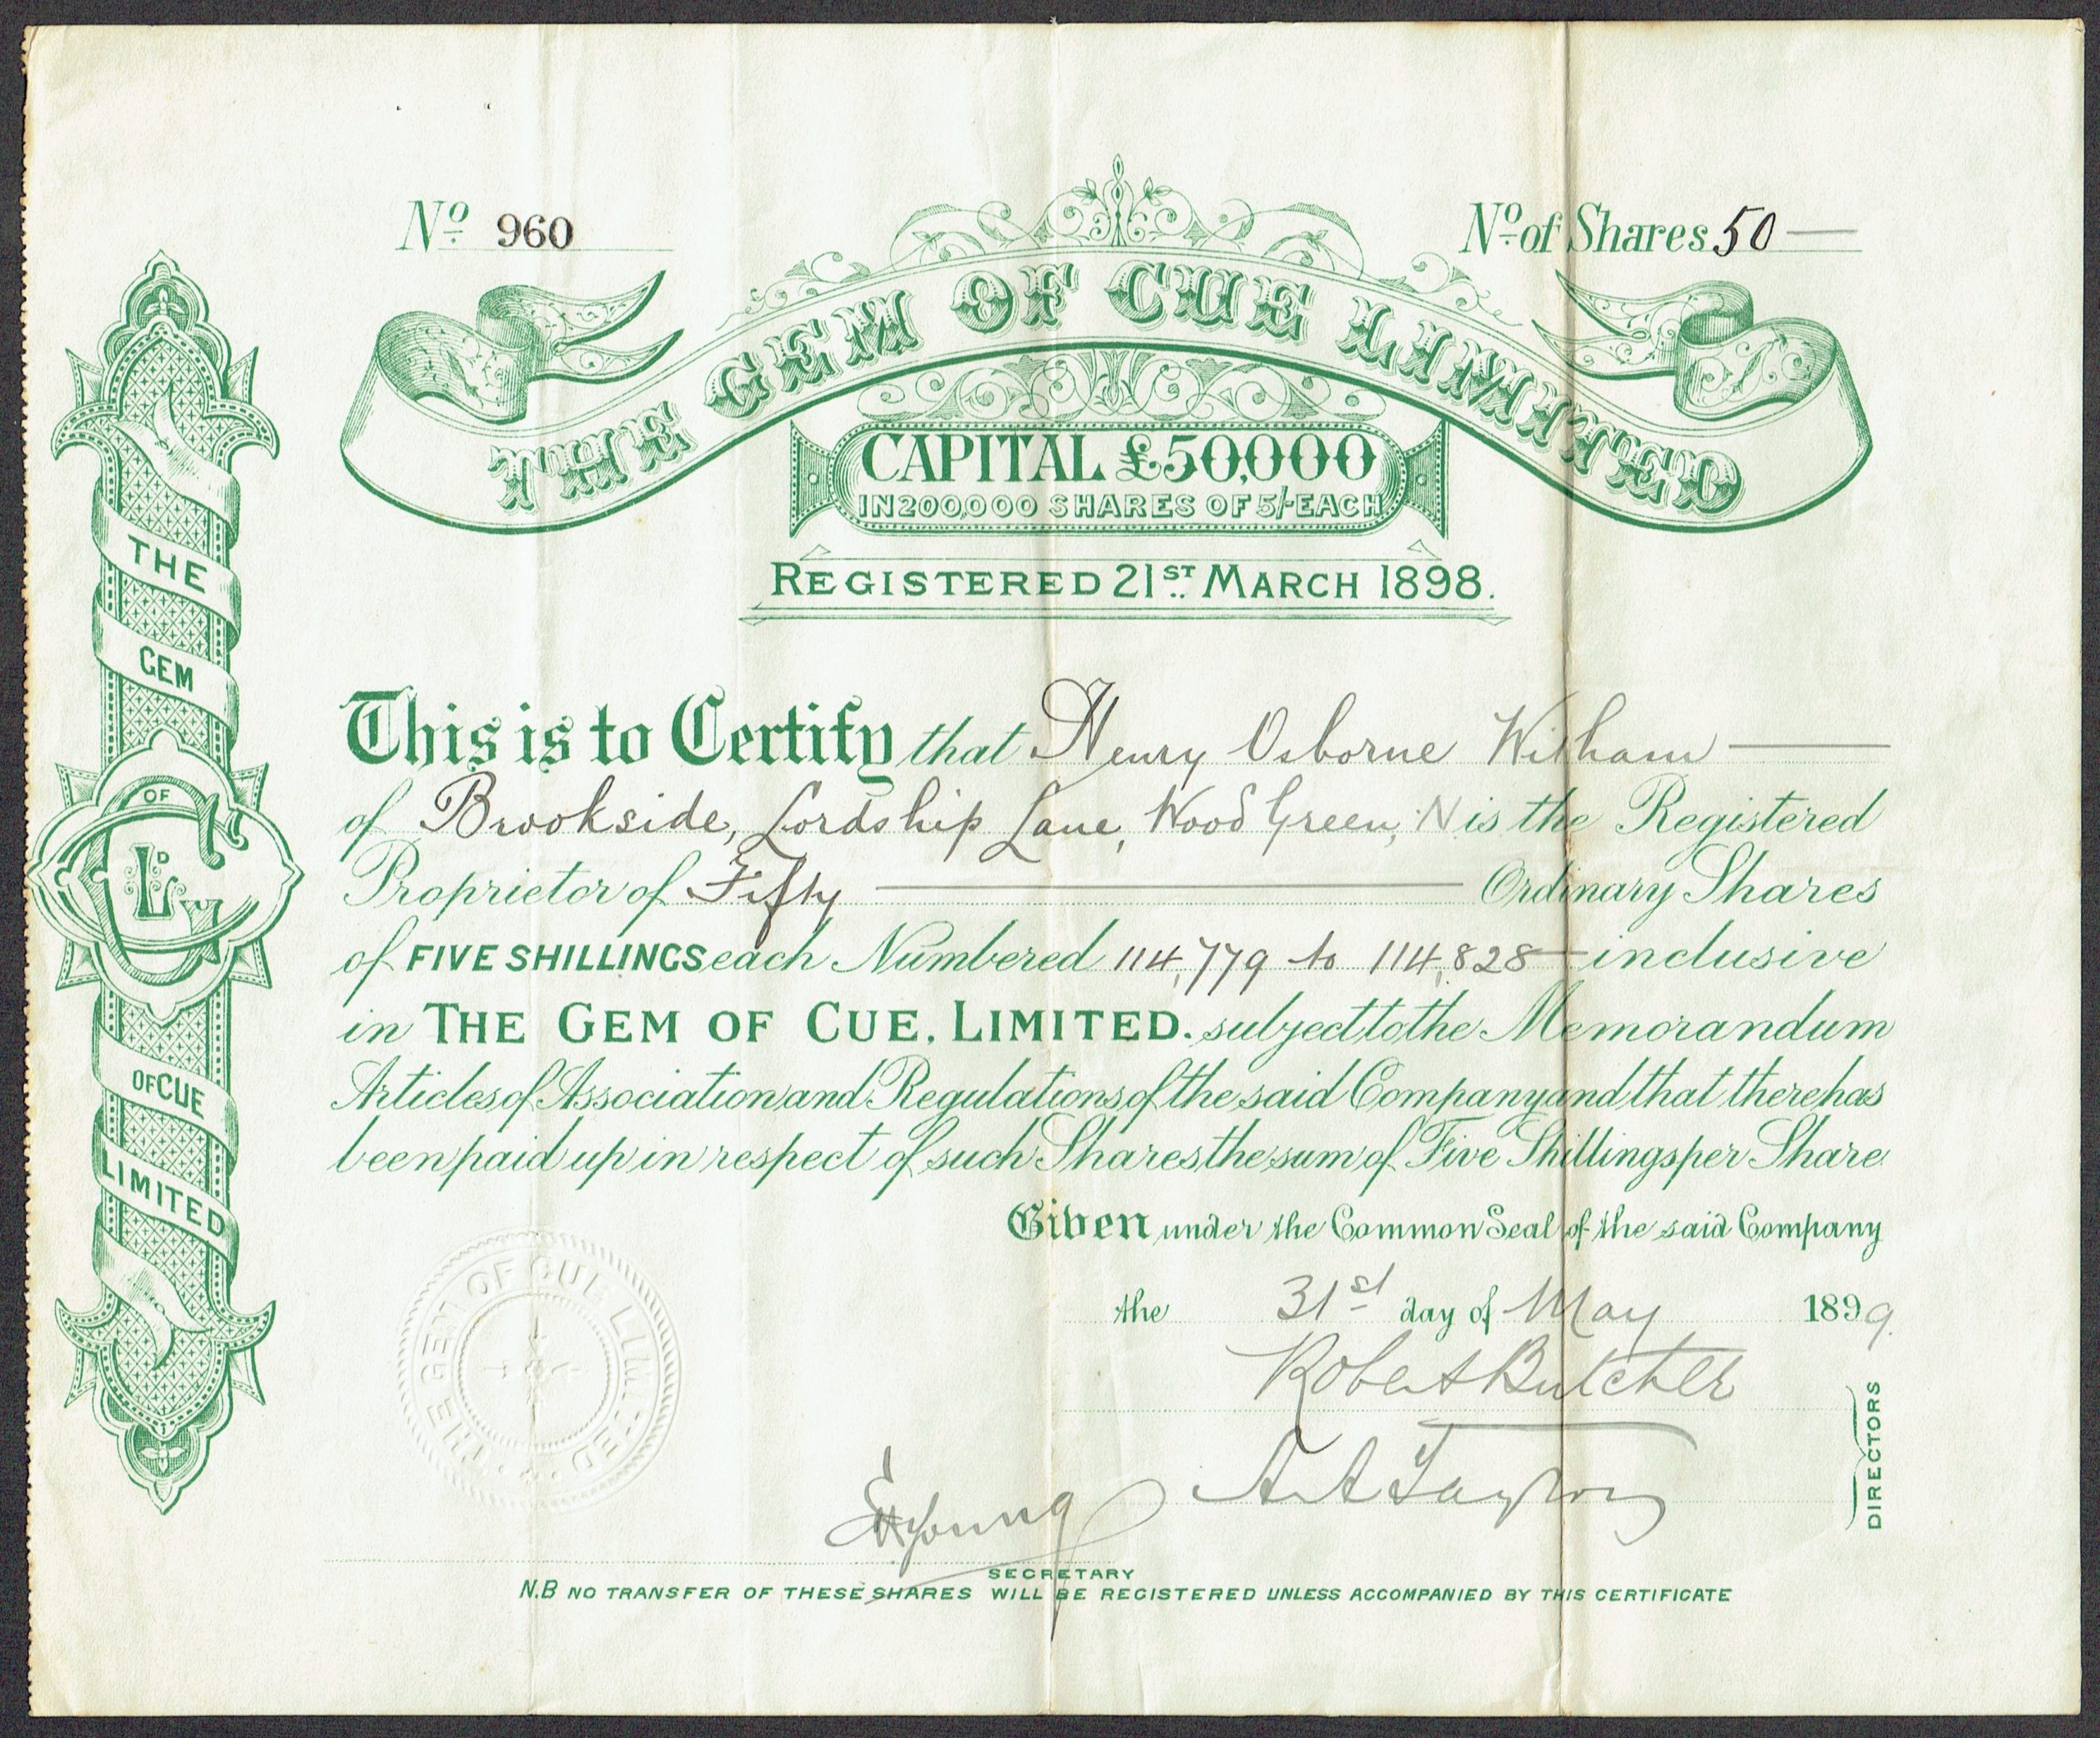 No. 960
No. of Shares 50
THE GEM OF CUE LIMITED
CAPITAL £50,000
IN 200,000 SHARES OF 5/- EACH
REGISTERED 21ST MARCH 1898.
THE
GEM
OF
C LD
OF CUE
LIMITED
This is to Certify that Henry Osborne Witham
of Brookside, Lordship Lane, Wood Green, N is the Registered
Proprietor of Fifty Ordinary Shares
of FIVE SHILLINGS each Numbered 114,779 to 114,828 inclusive
in THE GEM OF CUE, LIMITED. subject to the Memorandum
Articles of Association and Regulations of the said Company and that there has
been paid up in respect of such Shares the sum of Five Shillings per Share
Given under the Common Seal of the said Company
the 31st day of May 1899.
THE GEM OF CUE LIMITED
Robert Butcher
DIRECTORS
Young
SECRETARY
N.B NO TRANSFER OF THESE SHARES WILL BE REGISTERED UNLESS ACCOMPANIED BY THIS CERTIFICATE